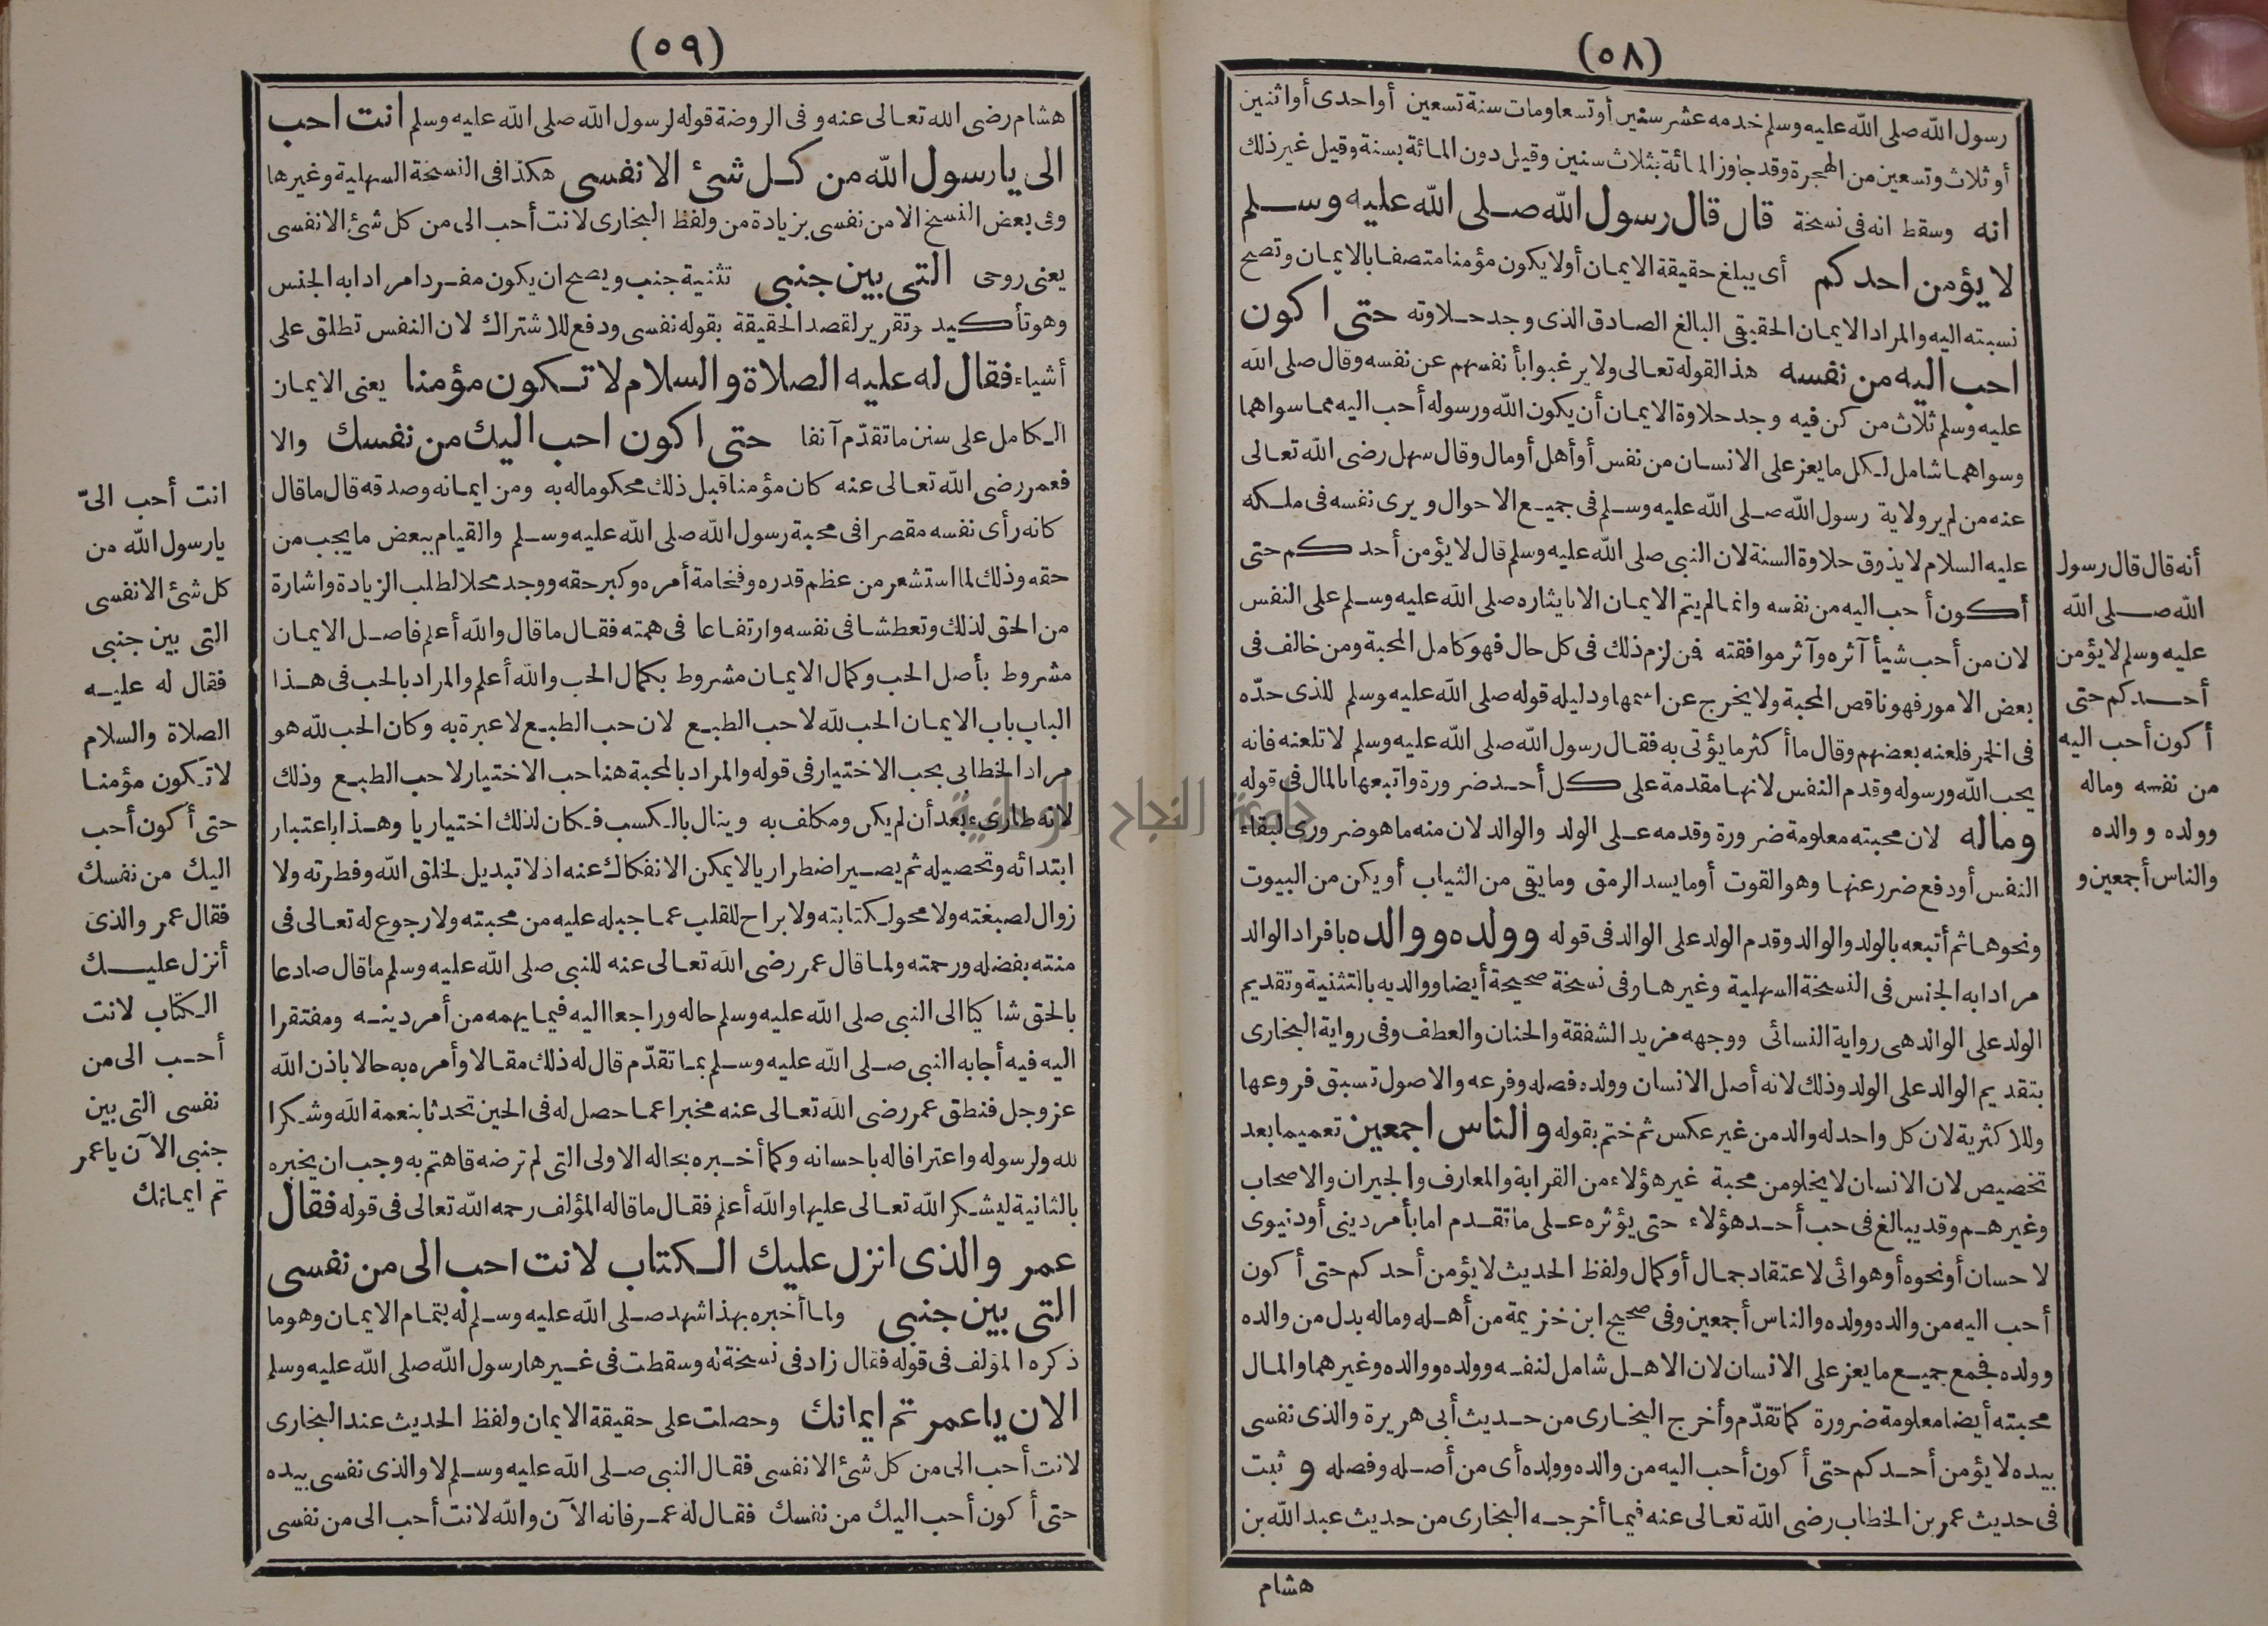 (٥٨)
رسول الله صلى الله عليه وسلم خدمه عشر سنين أو تسعا ومات سنة تسعين أو احدى أو اثنين
أو ثلاث وتسعين من الهجرة وقد جاوز المائة بثلاث سنين وقيل دون المائة بسنة وقيل غير ذلك
انه وسقط انه فى نسخة قال قال رسول الله صلى الله عليه وسلم
لا يؤمن احدكم أى يبلغ حقيقة الايمان أولا يكون مؤمنا متصفا بالايمان وتصح
نسبته اليه والمراد الايمان الحقيقى البالغ الصادق الذى وجد حلاوته حتى اكون
احب اليه من نفسه هذا لقوله تعالى ولا يرغبوا بأنفسهم عن نفسه وقال صلى الله
عليه وسلم ثلاث من كن فيه وجد حلاوة الايمان أن يكون الله ورسوله أحب اليه مما سواهما
وسواهما شامل لكل ما يعز على الانسان من نفس أو أهل أو مال وقال سهل رضى الله تعالى
عنه من لم ير ولاية رسول الله صلى الله عليه وسلم فى جميع الاحوال ويرى نفسه فى ملكه
عليه السلام لا يذوق حلاوة السنة لان النبى صلى الله عليه وسلم قال لا يؤمن أحدكم حتى
أكون أحب اليه من نفسه وانما لم يتم الايمان الا بايثاره صلى الله عليه وسلم على النفس
لان من أحب شيأ آثره وآثر موافقته فن لزم ذلك فى كل حال فهو كامل المحبة ومن خالف فى
بعض الامور فهو ناقص المحبة ولا يخرج عن اسمها ودليله قوله صلى الله عليه وسلم للذى حدّه
فى الخمر فلعنه بعضهم وقال ما أكثر ما يؤتى به فقال رسول الله صلى الله عليه وسلم لا تلعنه فانه
يحب الله ورسوله وقدم النفس لانها مقدمة على كل أحد ضرورة واتبعها بالمال فى قوله
وماله لان محبته معلومة ضرورة وقدمه على الولد والوالد لان منه ما هو ضرورى لبقاء
النفس أو دفع ضرر عنها وهو القوت أو ما يسد الرمق وما يقى من الثياب أو يكن من البيوت
ونحوها ثم أتبعه بالولد والوالد وقدم الولد على الوالد فى قوله وولده ووالده بافراد الوالد
مرادا به الجنس فى النسخة السهلية وغيرها وفى نسخة صحيحة أيضا ووالديه بالتثنية وتقديم
الولد على الوالد هى رواية النسائى ووجهه مزيد الشفقة والحنان والعطف وفى رواية البخارى
بتقديم الوالد على الولد وذلك لانه أصل الانسان وولده فصله وفرعه والاصول تسبق فروعها
وللاكثرية لان كل واحد له والد من غير عكس ثم ختم بقوله والناس اجمعين تعميما بعد
تخصيص لان الانسان لا يخلو من محبة غير هؤلاء من القرابة والمعارف والجيران والاصحاب
وغيرهم وقد يبالغ فى حب أحد هؤلاء حتى يؤثره على ما تقدم اما بأمر دينى أو دنيوى
لاحسان أو نحوه أو هوائى لاعتقاد جمال أو كمال ولفظ الحديث لا يؤمن أحدكم حتى أكون
أحب اليه من والده وولده والناس أجمعين وفى صحيح ابن خزيمة من أهله وماله بدل من والده
وولده فجمع جميع ما يعز على الانسان لان الاهل شامل لنفسه وولده ووالده وغيرهما والمال
محبته أيضا معلومة ضرورة كما تقدّم وأخرج البخارى من حديث أبى هريرة والذى نفسى
بيده لا يؤمن أحدكم حتى أكون أحب اليه من والده وولده أى من أصله وفصله و ثبت
فى حديث عمر بن الخطاب رضى الله تعالى عنه فيما أخرجه البخارى من حديث عبد الله بن
هشام
أنه قال قال رسول
الله صلى الله
عليه وسلم لا يؤمن
أحدكم حتى
أكون أحب اليه
من نفسه وماله
وولده و والده
والناس أجمعين و
(٥٩)
هشام رضى الله تعالى عنه وفى الروضة قوله لرسول الله صلى الله عليه وسلم انت احب
الى يا رسول الله من كل شئ الا نفسى هكذا فى النسخة السهلية وغيرها
وفى بعض النسخ الا من نفسى بزيادة من ولفظ البخارى لانت أحب الى من كل شئ الا نفسى
يعنى روحى التى بين جنبى تثنية جنب ويصح ان يكون مفردا مرادا به الجنس
وهو تأكيد وتقرير لقصد الحقيقة بقوله نفسى ودفع للاشتراك لان النفس تطلق على
أشياء فقال له عليه الصلاة والسلام لا تكون مؤمنا يعنى الايمان
الكامل على سنن ما تقدّم آنفا حتى اكون احب اليك من نفسك والا
فعمر رضى الله تعالى عنه كان مؤمنا قبل ذلك محكوما له به ومن ايمانه وصدقه قال ما قال
كانه رأى نفسه مقصرا فى محبة رسول الله صلى الله عليه وسلم والقيام ببعض ما يجب من
حقه وذلك لما استشعر من عظم قدره وفخامة أمره وكبر حقه ووجد محلا لطلب الزيادة واشارة
من الحق لذلك وتعطشا فى نفسه وارتفاعا فى همته فقال ما قال والله أعلم فاصل الايمان
مشروط بأصل الحب وكمال الايمان مشروط بكمال الحب والله أعلم والمراد بالحب فى هذا
الباب باب الايمان الحب لله لا حب الطبع لان حب الطبع لا عبرة به وكان الحب لله هو
مراد الخطابى بحب الاختيار فى قوله والمراد بالمحبة هنا حب الاختيار لا حب الطبع وذلك
لانه طارىء بعد أن لم يكن ومكلف به وينال بالكسب فكان لذلك اختياريا وهذا باعتبار
ابتدائه وتحصيله ثم يصير اضطراريا لا يمكن الانفكاك عنه اذ لا تبديل لخلق الله وفطرته ولا
زوال لصبغته ولا محو لكتابته ولا براح للقلب عما جبله عليه من محبته ولا رجوع له تعالى فى
منته بفضله ورحمته ولما قال عمر رضى الله تعالى عنه للنبى صلى الله عليه وسلم ما قال صادعا
بالحق شاكيا الى النبى صلى الله عليه وسلم حاله وراجعا اليه فيما يهمه من أمر دينه ومفتقرا
اليه فيه أجابه النبى صلى الله عليه وسلم بما تقدّم قال له ذلك مقالا وأمره به حالا باذن الله
عز وجل فنطق عمر رضى الله تعالى عنه مخبرا عما حصل له فى الحين تحدثا بنعمة الله وشكرا
لله ولرسوله واعترافا له باحسانه وكما أخبره بحاله الاولى التى لم ترضه فاهتم به وجب ان يخبره
بالثانية ليشكر الله تعالى عليها والله أعلم فقال ما قاله المؤلف رحمه الله تعالى فى قوله فقال
عمر والذى انزل عليك الكتاب لانت احب الى من نفسى
التى بين جنبى ولما أخبره بهذا شهد صلى الله عليه وسلم له بتمام الايمان وهو ما
ذكره المؤلف فى قوله فقال زاد فى نسخة له وسقطت فى غيرها رسول الله صلى الله عليه وسلم
الان يا عمر تم ايمانك وحصلت على حقيقة الايمان ولفظ الحديث عند البخارى
لانت أحب الى من كل شئ الا نفسى فقال النبى صلى الله عليه وسلم لا والذى نفسى بيده
حتى أكون أحب اليك من نفسك فقال له عمر فانه الآن والله لانت أحب الى من نفسى
انت أحب الىّ
يا رسول الله من
كل شئ الا نفسى
التى بين جنبى
فقال له عليه
الصلاة والسلام
لا تكون مؤمنا
حتى أكون أحب
اليك من نفسك
فقال عمر والذى
أنزل عليك
الكتاب لانت
أحب الى من
نفسى التى بين
جنبى الآن يا عمر
تم ايمانك
جامعة النجاح الوطنية